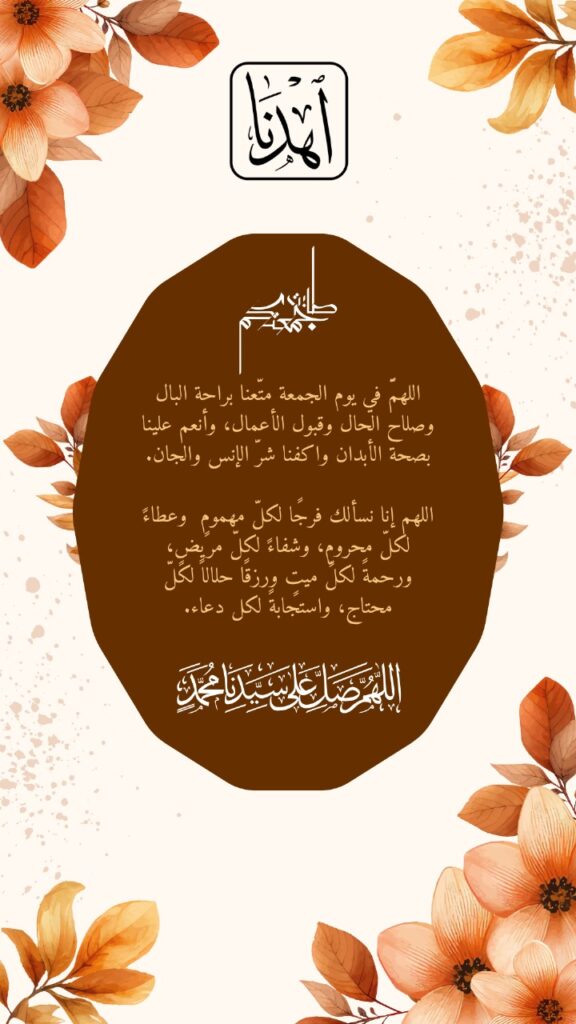 اهدنا
طابت جمعتكم
اللهمّ في يوم الجمعة متّعنا براحة البال
وصلاح الحال وقبول الأعمال، وأنعم علينا
بصحة الأبدان واكفنا شرّ الإنس والجان.
اللهم إنا نسألك فرجًا لكلّ مهمومٍ وعطاءً
لكلّ محرومٍ، وشفاءً لكلّ مريضٍ،
ورحمةً لكلّ ميتٍ ورزقًا حلالاً لكلّ
محتاج، واستجابةً لكل دعاء.
اللَّهُمَّ صَلِّ عَلَى سَيِّدِنَا مُحَمَّدٍ